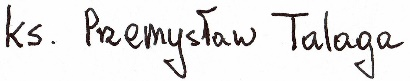 ks. Przemysław Talaga